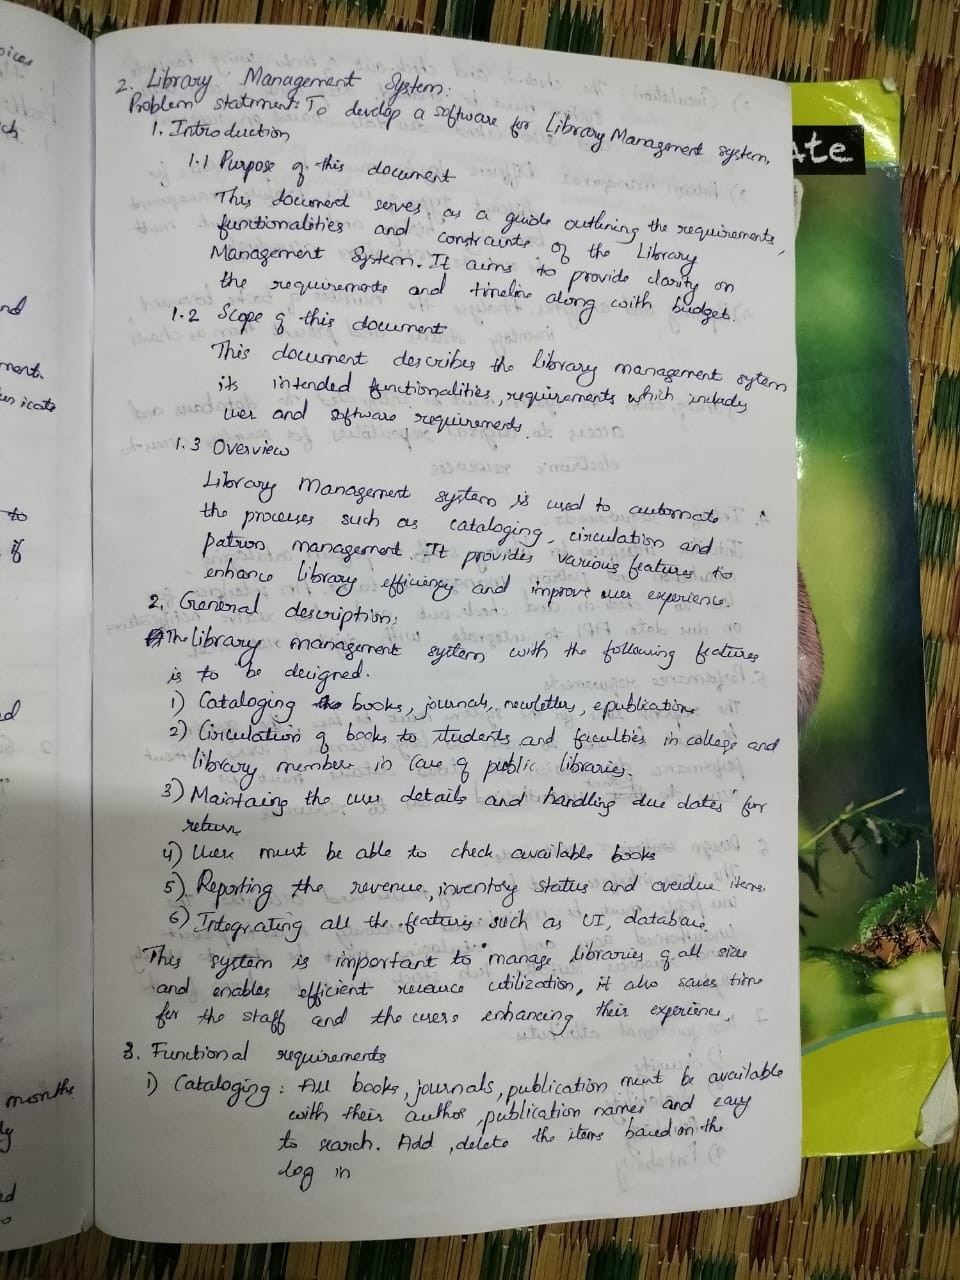 2. Library Management System:
Problem statement: To develop a software for Library Management system,
1. Introduction
1.1 Purpose of this document
This document serves as a guide outlining the requirements,
functionalities and constraints of the Library
Management System. It aims to provide clarity on
the requirements and timeline along with budget.
1.2 Scope of this document
This document describes the library management sytem
its intended functionalities, requirements which includes
user and software requirements.
1.3 Overview
Library Management system is used to automate
the processes such as cataloging, circulation and
patron management. It provides various features to
enhance library efficiency and improve user experience.
2. General description:
The library management system with the following features
is to be designed.
1) Cataloging books, journals, newsletters, epublications
2) Circulation of books to students and faculties in college and
library members in case of public libraries.
3) Maintaing the user details and handling due dates for
return
4) Users must be able to check available books
5) Reporting the revenue, inventory status and overdue items.
6) Integrating all the features such as UI, database.
This system is important to manage libraries of all size
and enables efficient resource utilization, it also saves time
for the staff and the users enhancing their experience.
3. Functional requirements
1) Cataloging: All books, journals, publication must be available
with their author, publication names and easy
to search. Add, delete the items based on the
log in
ate
oices
nd
ment.
to
if
ed
months
ly
ed